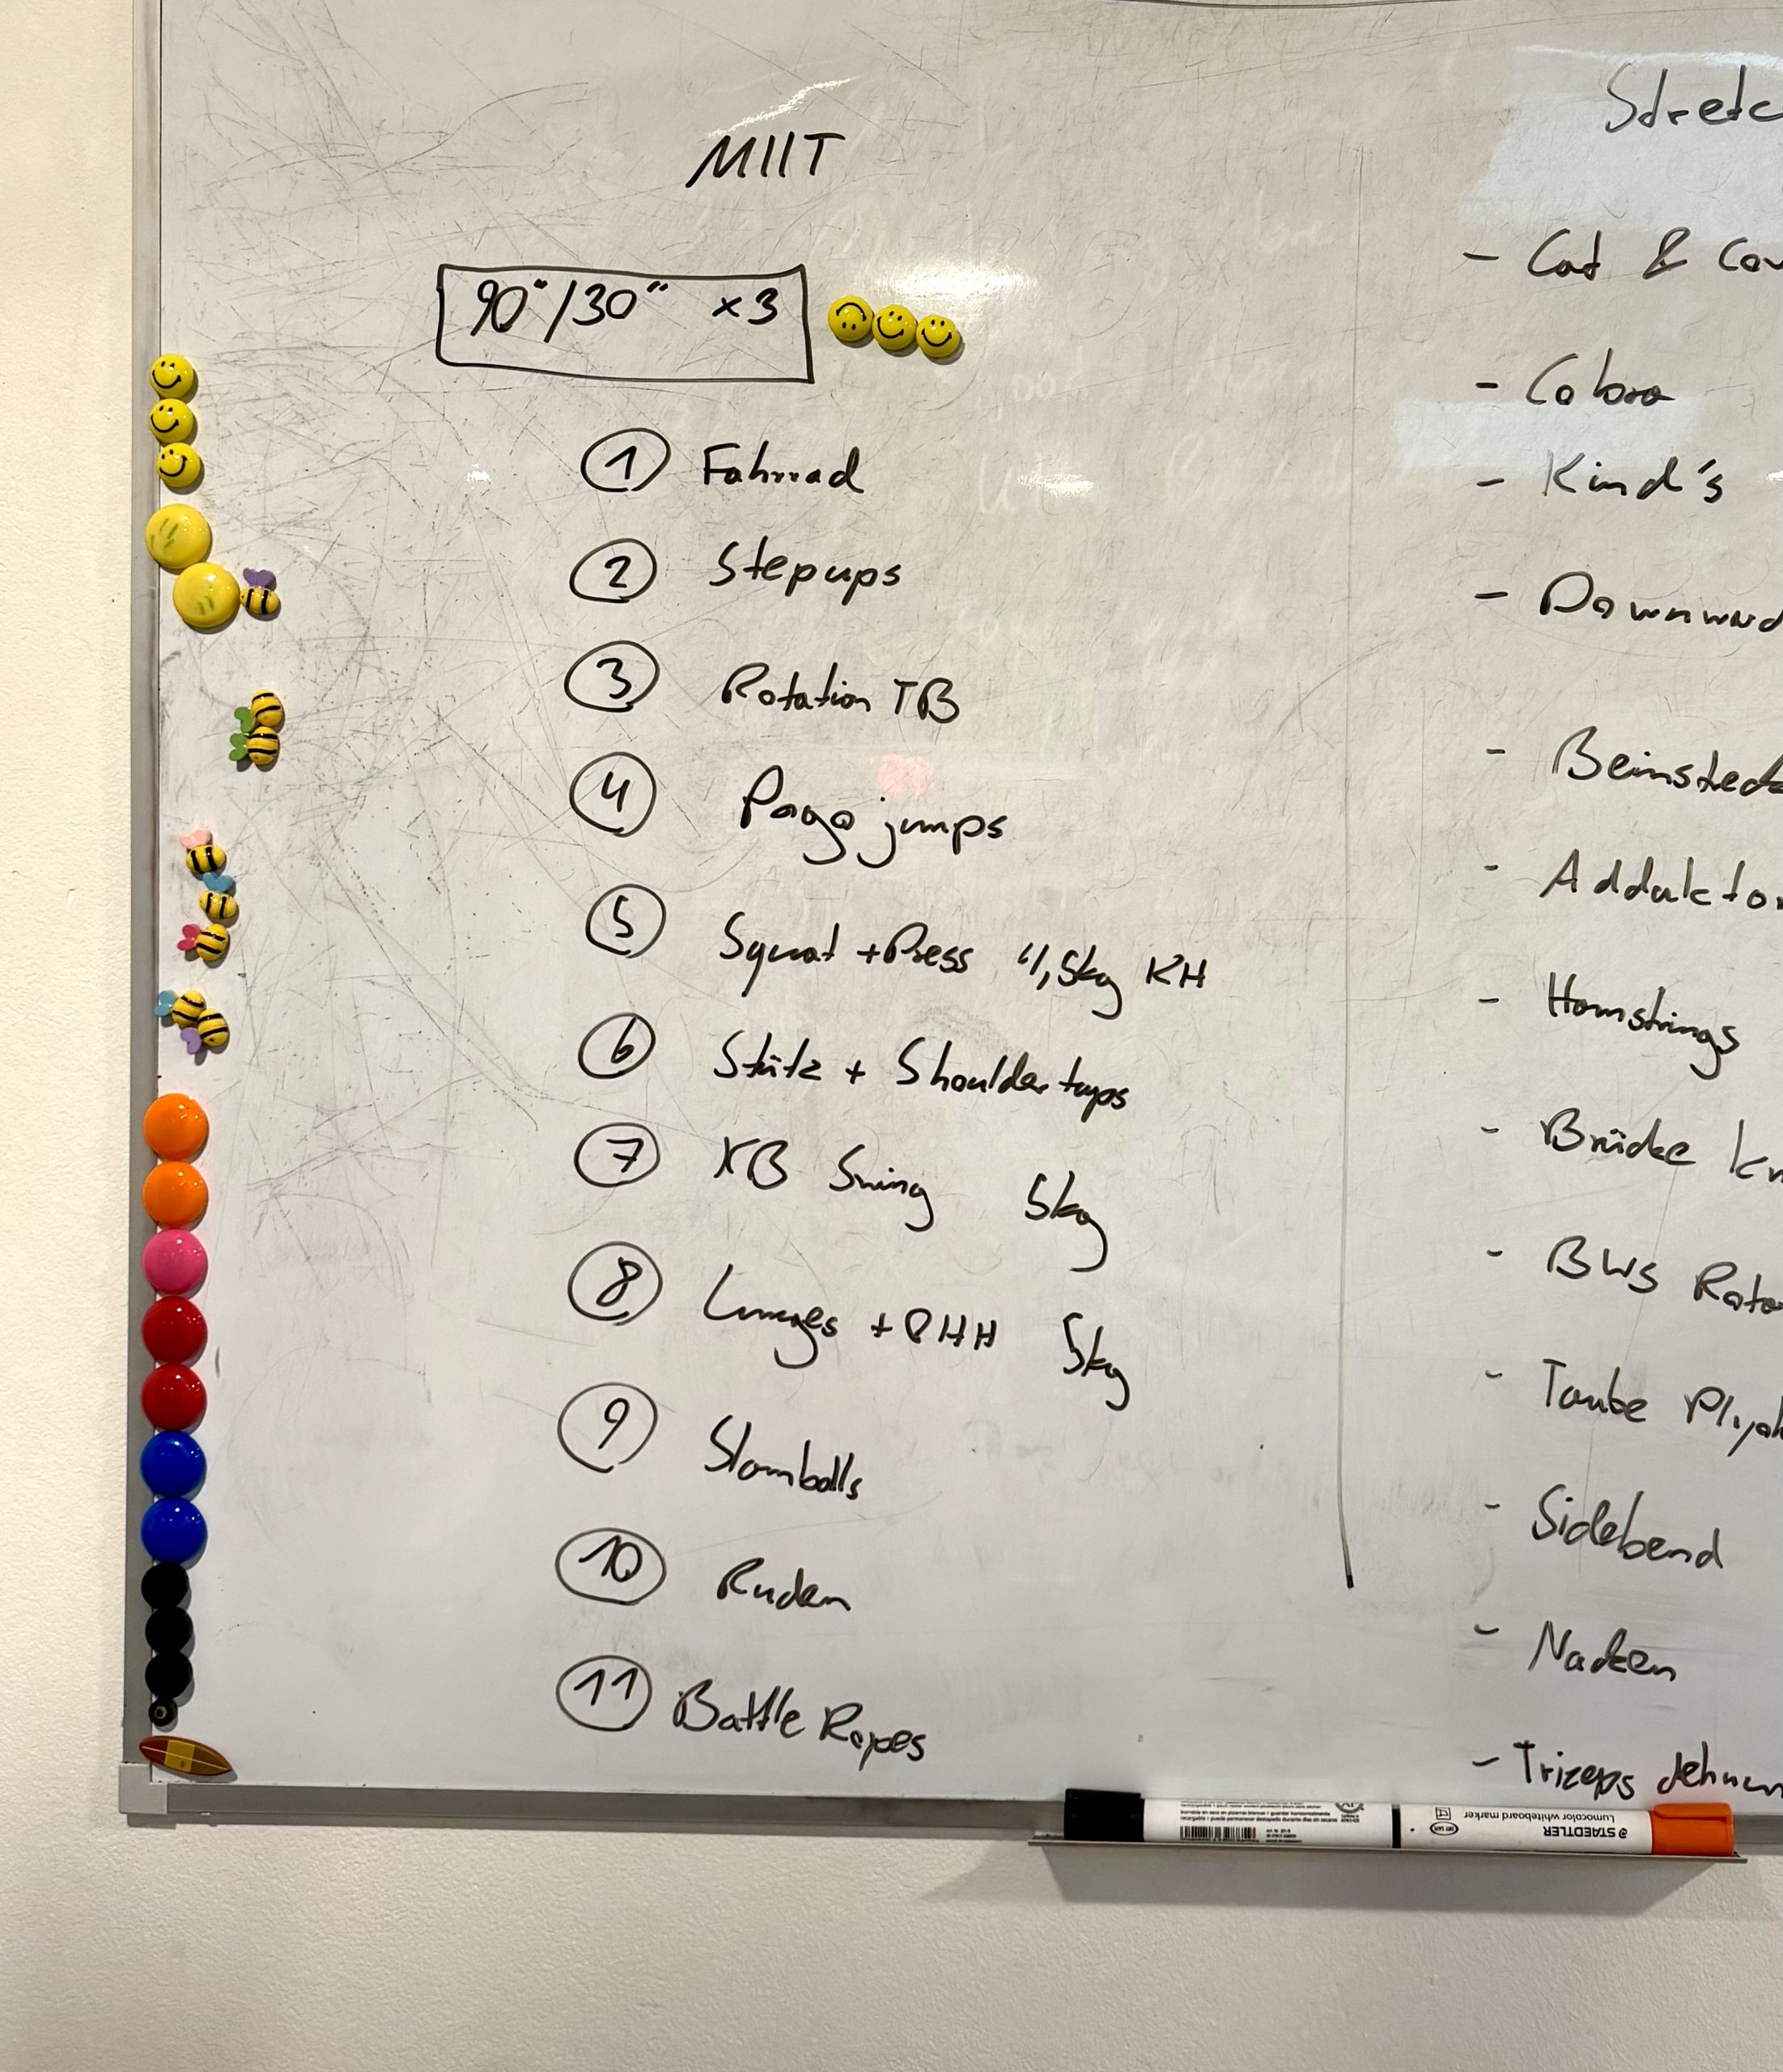 MIIT
90"/30" x3
① Fahrrad
② Stepups
③ Rotation TB
④ Pogo jumps
⑤ Squat + Press 4,5kg KH
⑥ Stütz + Shoulder taps
⑦ KB Swing 5kg
⑧ Lunges + 5kg
⑨ Slamballs
⑩ Rudern
⑪ Battle Ropes
Stretc
- Cat & Cow
- Cobra
- Kind's
- Downward
- Beinstreck
- Adduktor
- Hamstrings
- Brücke kn
- BWS Rota
- Taube
- Sidebend
- Nacken
- Trizeps dehnen
STAEDTLER
Lumocolor whiteboard marker